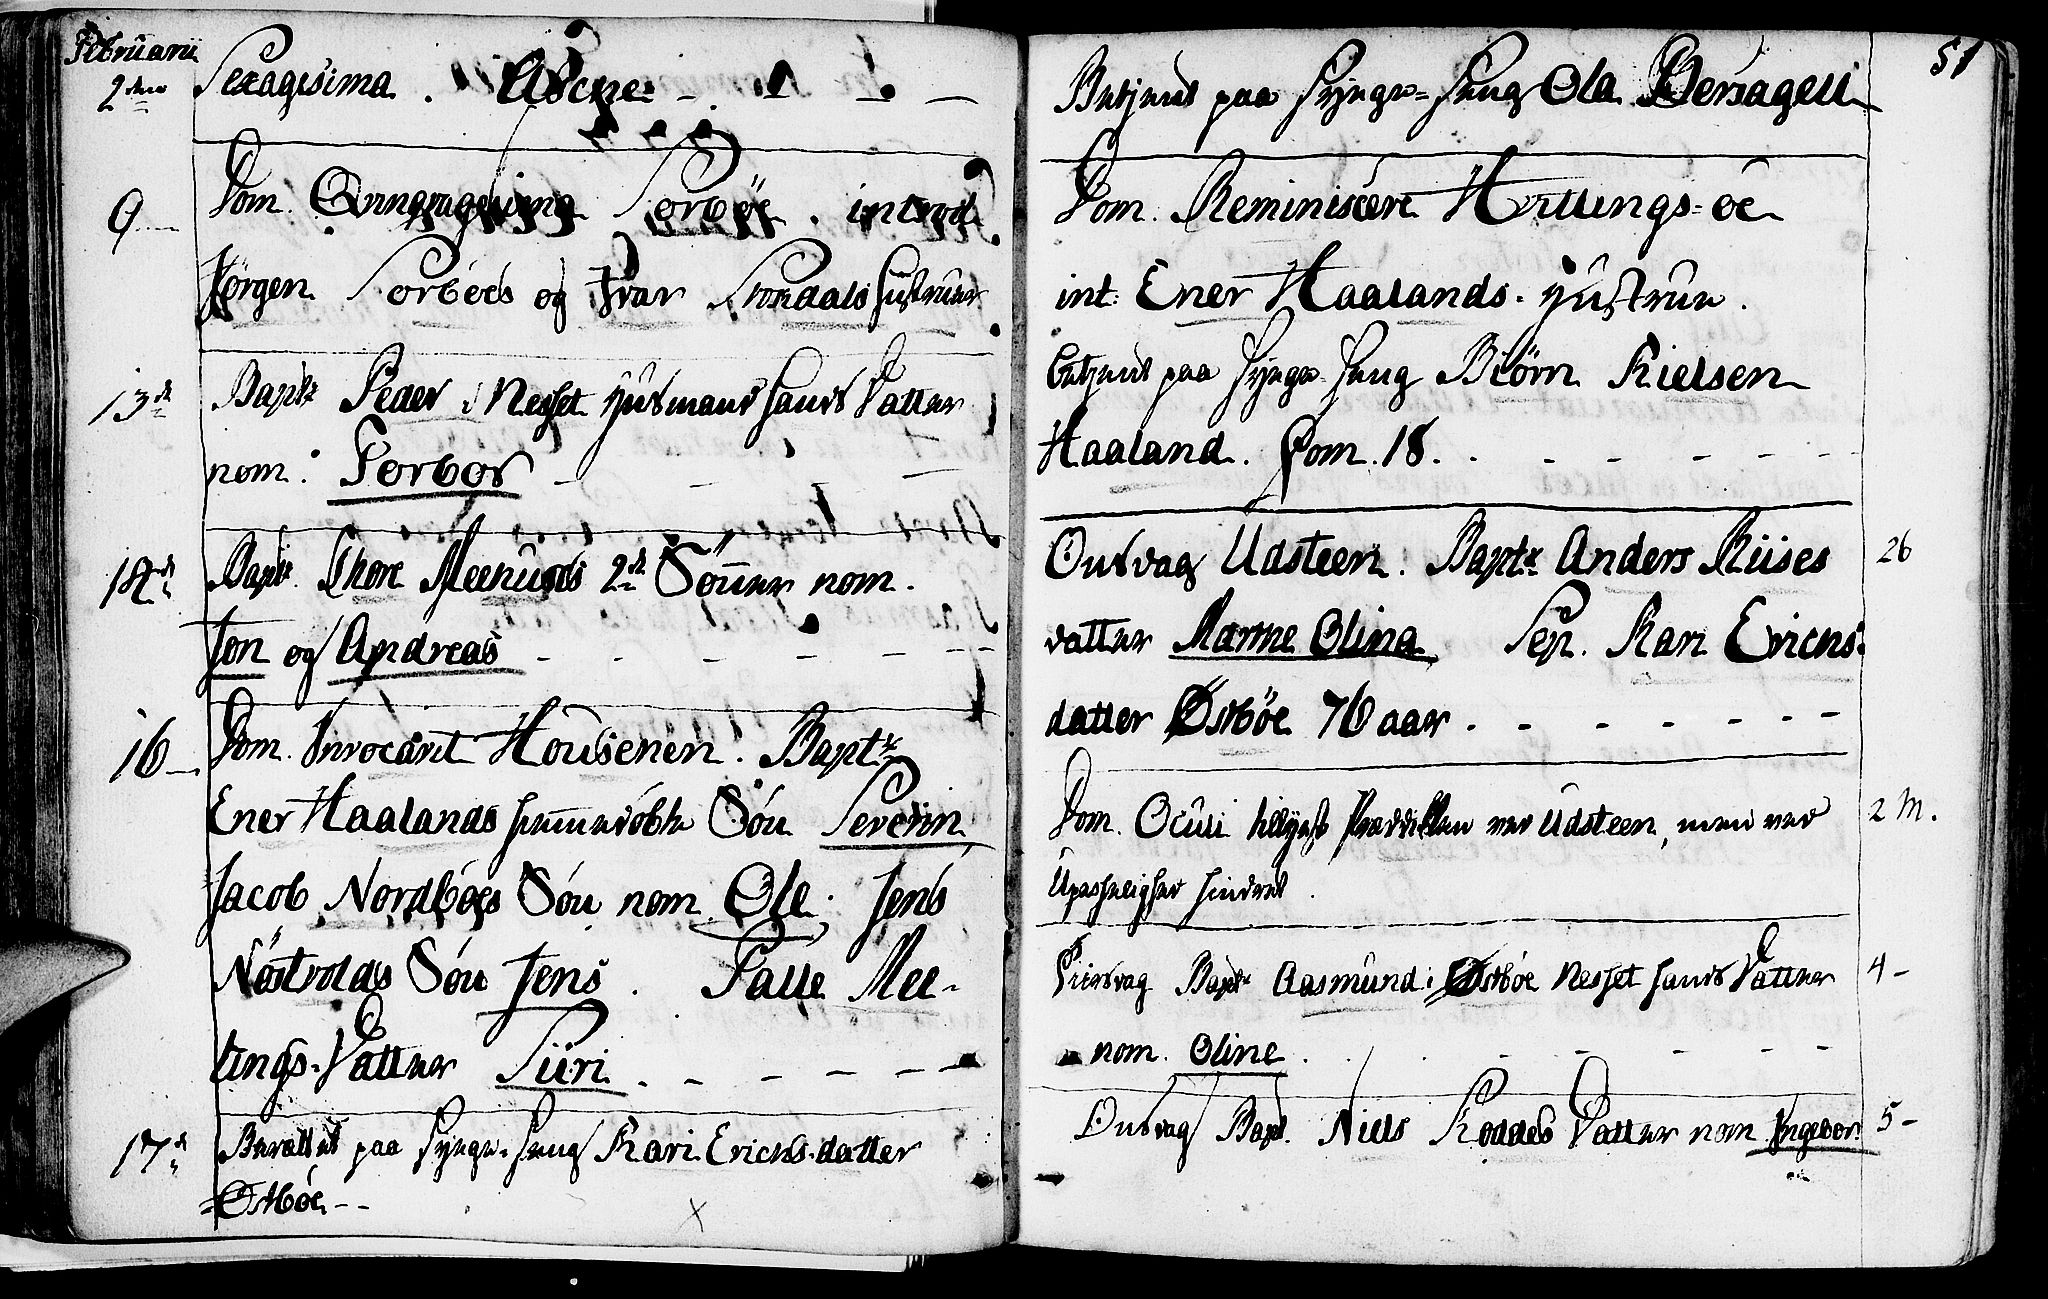 Februarii
2den Sexagesima. Aschøe
9 Dom. Qvinqvagesima Sørbøe. introd.
Jørgen Sørbøes og Ivar Stordals Hustruer
13de Bapt: Peder i Nesset Huusmand hans Datter
nom: Torbor
14de Bapt: Thore Meelunds 2de Sönner nom.
Jon og Andreas
16 Dom. Invocavit Housenen. Bapt:
Ener Haalands Søn Severin
Jacob Nordbøes Søn nom. Ole. Jens
Nöstvolds Søn Jens. Palle Mel-
lings Datter Siiri
17de Berettet paa Syyge-Seng Kari Erichs-datter
Østbøe
51
Betjent paa Syyge-Seng Ola Bersagell
Dom. Reminiscere Hvillings-øe
int: Ener Haalands Hustrue.
betjent paa Syyge-Seng Biörn Nielsen
Haaland. Dom. 18.
Onsdag Udsteen. Bapt: Anders Riises 26
datter Marne Olina Sep. Kari Erichs-
datter Østbøe 76 aar.
Dom. Oculi Prædiken ved Udsteen, men ved 2 M.
hindret.
Tiirsdag Bapt: Aasmund i Østbøe Nesset hans Datter 4
nom. Oline
Onsdag Bapt. Niels Koddes Datter nom Ingebor 5